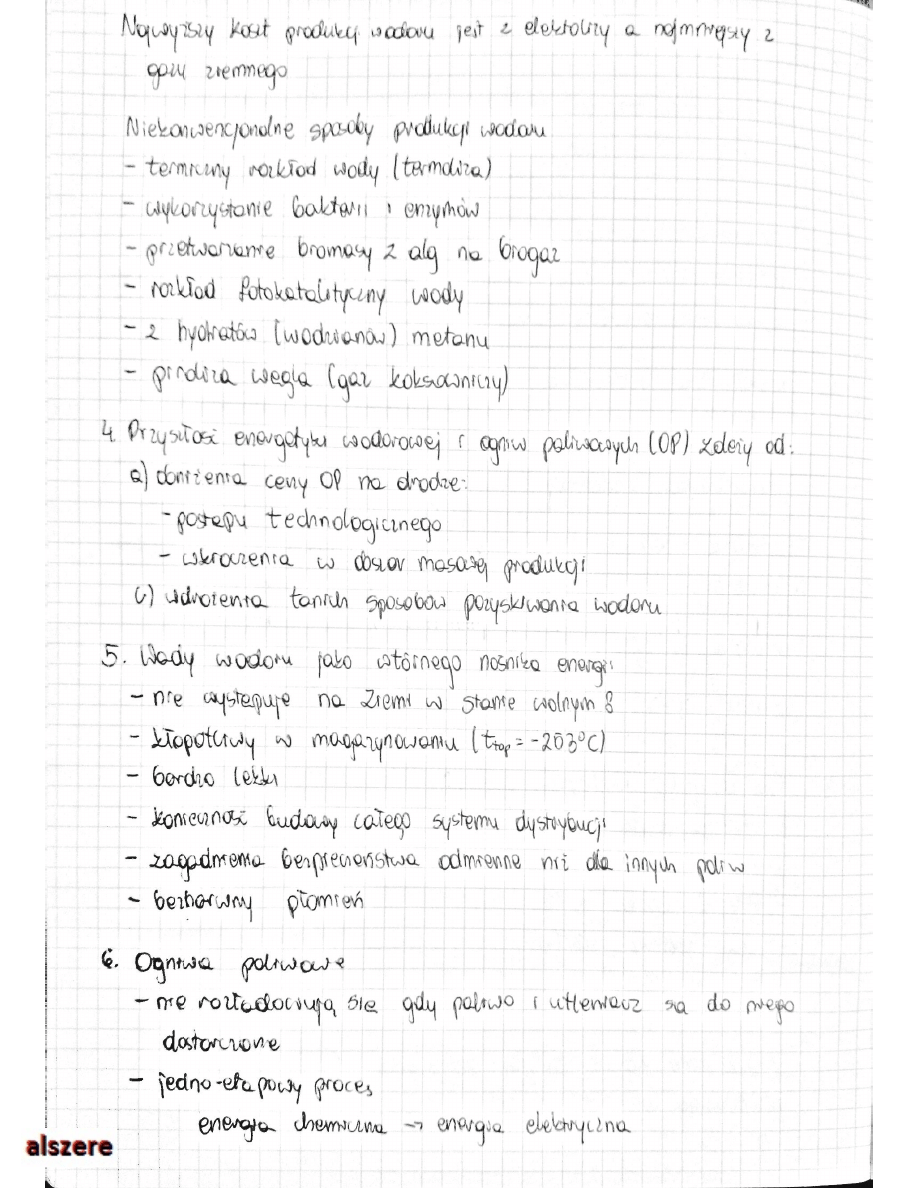 Najwyższy koszt produkcji wodoru jest z elektrolizy a najmniejszy z
gazu ziemnego
Niekonwencjonalne sposoby produkcji wodoru
- termiczny rozkład wody (termoliza)
- wykorzystanie bakterii i enzymów
- przetwarzanie biomasy z alg na biogaz
- rozkład fotokatalityczny wody
- z hydratów (wodzianów) metanu
- piroliza węgla (gaz koksowniczy)
4. Przyszłość energetyki wodorowej i ogniw paliwowych (OP) zależy od:
a) obniżenia ceny OP na drodze:
- postępu technologicznego
- wkroczenia w obszar masowej produkcji
c) wdrożenia tanich sposobów pozyskiwania wodoru
5. Wady wodoru jako wtórnego nośnika energii
- nie występuje na Ziemi w stanie wolnym
- kłopotliwy w magazynowaniu (ttop = -203°C)
- bardzo lekki
- konieczność budowy całego systemu dystrybucji
- zagadnienia bezpieczeństwa odmienne niż dla innych paliw
- bezbarwny płomień
6. Ogniwa paliwowe
- nie rozładowują się gdy paliwo i utleniacz są do niego
dostarczone
- jedno-etapowy proces
energia chemiczna → energia elektryczna
alszere